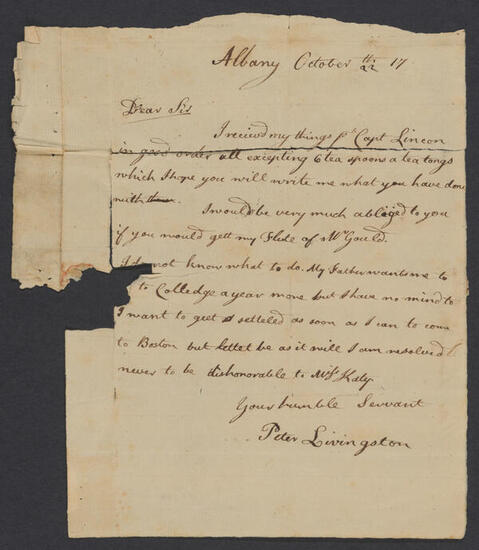 Albany October 22th 17
Dear Sir
I reciev'd my things pr Capt Lincon
in good order all excepting 6 tea spoons a tea tongs
which I hope you will write me what you have done
with them.
I would be very much abliged to you
if you would gett my Flute of Mr Gould.
I do not know what to do. My Father wants me to
to Colledge a year more but I have no mind to
I want to geet setteled as soon as I can to com
to Boston but lettet be as it will I am resolved
never to be dishonorable to Mrs Katy.
Your humble Servant
Peter Livingston